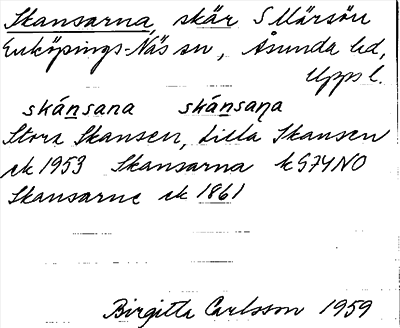 Skansarna, skär S Märsön
Enköpings-Näs sn, Åsunda hd,
Upps l.
skánsana skánsaṇa
Stora Skansen, Lilla Skansen
ek 1953 Skansarna k G74NO
Skansarne ek 1861
Birgitta Carlsson 1959